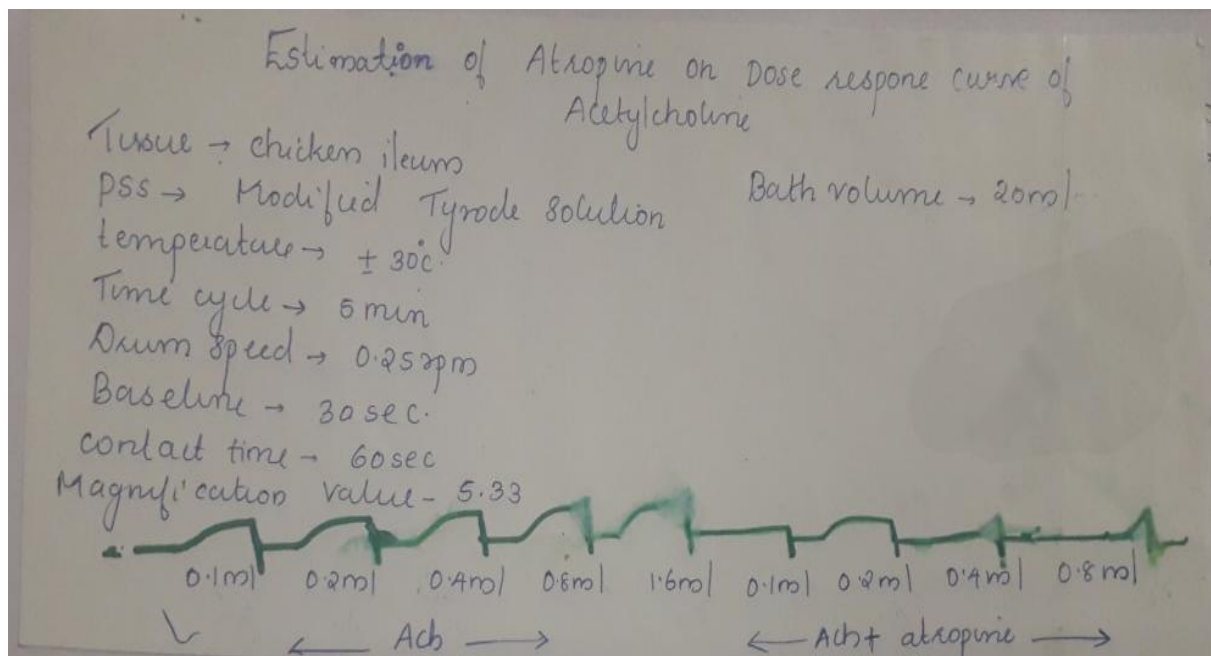 Estimation of Atropine on Dose respone curve of
Acetylcholine
Tissue → chicken ileum
PSS → Modified Tyrode solution
Bath volume → 20ml
temperature → ± 30°c.
Time cycle → 5 min
Drum speed → 0.25rpm
Baseline → 30 sec.
contact time → 60sec
Magnification value - 5.33
0.1ml 0.2ml 0.4ml 0.8ml 1.6ml 0.1ml 0.2ml 0.4ml 0.8ml
← Ach → ← Ach+ atropine →